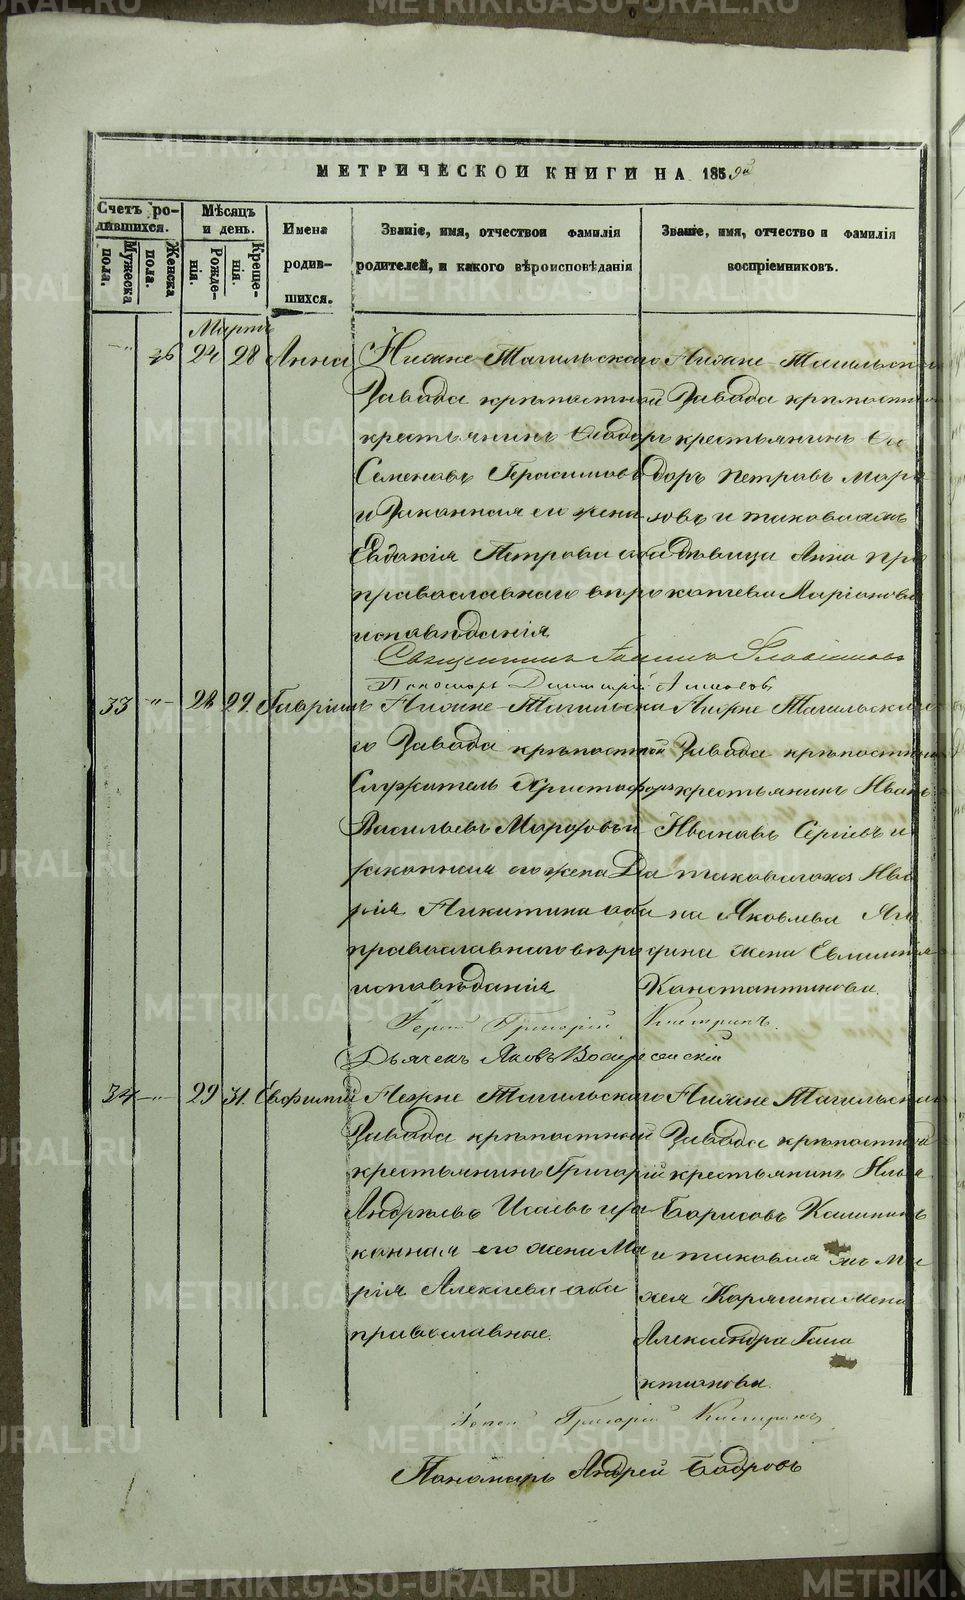 МЕТРИЧЕСКОИ КНИГИ НА 1859й
Счетъ ро-
дившихся.
Мѣсяцъ
и день.
Имена
родив-
шихся.
Званіе, имя, отчествои фамилія
родителей, и какого вѣроисповѣданія
Званіе, имя, отчество и фамилія
воспріемниковъ.
Мужеска
пола.
Женска
пола.
Рожде-
нія.
Креще-
нія.
Мартъ
-"- 26 24 28 Анна
Нижне-Тагильскаго
Завода крѣпостной
крестьянинъ Ѳеодоръ
Семеновъ Герасимовъ
и Законная его жена
Евдокія Петрова оба
православнаго вѣро
исповѣданія
Нижне-Тагильскаго
Завода крѣпостной
крестьянинъ Ѳео
доръ Петровъ Моро
зовъ и таковаяжъ
дѣвица Анна Про
копьева Ларіонова
Священникъ Іоаннъ
Пономарь Димитрій
33 -"- 28 29 Гавріилъ
Нижне-Тагильска
го Завода крѣпостной
Служитель Христофоръ
Васильевъ Морозовъ и
законная его жена Да
рія Никитина оба
православнаго вѣро
исповѣданія
Нижне Тагильскаго
Завода крѣпостный
крестьянинъ Иванъ
Ивановъ Сергіевъ и
таковагожъ Ива
на Яковлева
жена Евлампія
Константинова.
Іерей Григорій
Дьячекъ Яковъ Воскресенскій
34 -"- 29 31. Евфимій
Нижне Тагильскаго
Завода крѣпостной
крестьянинъ Григорій
Андреевъ Исаевъ и за
конная его жена Ма
рія Алексѣева оба
православные.
Нижне Тагильскаго
Завода крѣпостной
крестьянинъ Илья
Борисовъ Калининъ
и таковая жъ Ми
хея Карякина жена
Александра Гала
ктионова.
Іерей Григорій
Пономарь Андрей Бобровъ
METRIKI.GASO-URAL.RU